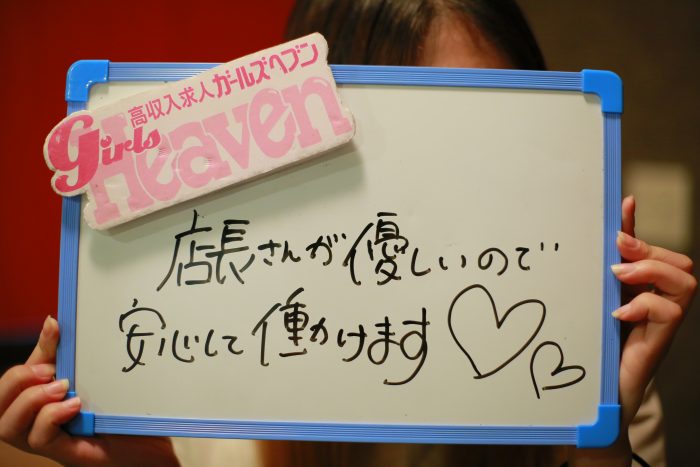 高収入求人ガールズヘブン
Girls Heaven
店長さんが優しいので
安心して働けます